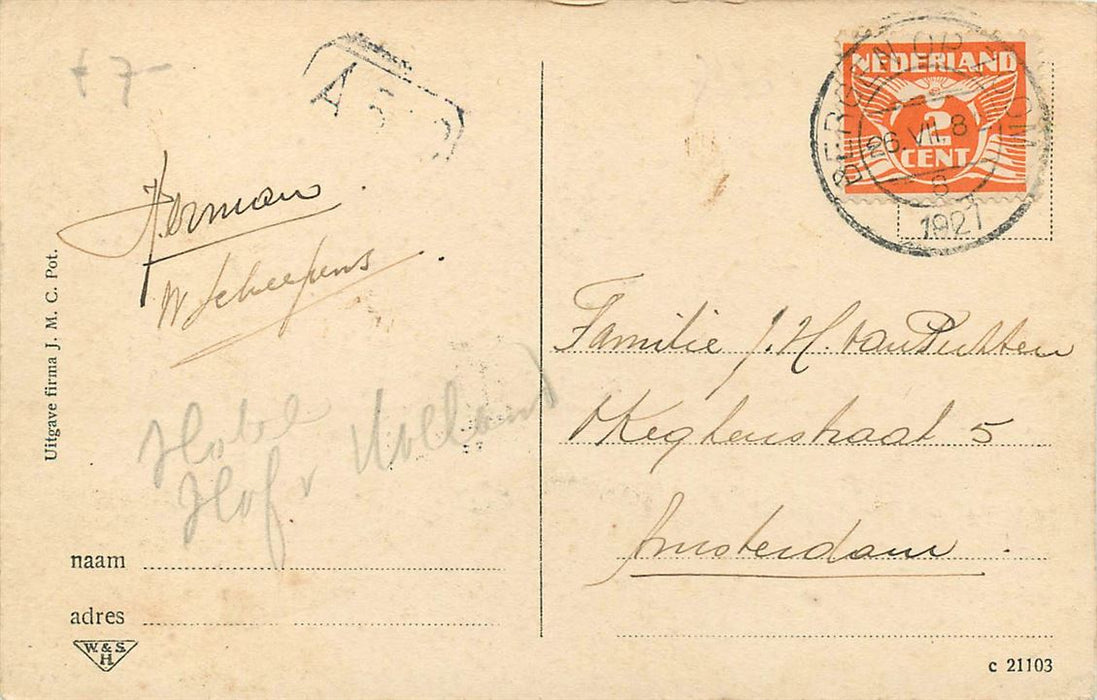 f 7-
A 5
NEDERLAND
2
CENT
BERGEN OP ZOOM
26.VII.8
6
1927
Herman
W Scheepens
Uitgave firma J. M. C. Pot.
Hotel
Hof v Holland
Familie J. H. van
5
Amsterdam.
naam
adres
W. & S.
H
c 21103